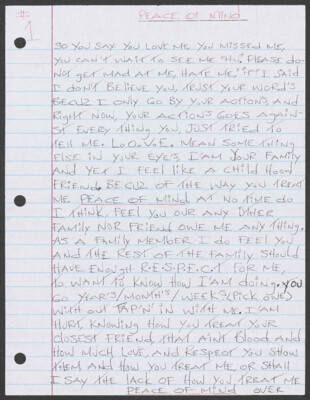 #1
PEACE OF MIND
SO YOU SAY YOU LOVE ME YOU MISSED ME,
YOU CAN'T WAIT TO SEE ME PLEASE DO-
NOT GET MAD AT ME, HATE ME, IF I SAID
I DON'T BELIEVE YOU, TRUST YOUR WORD'S
BECUZ I ONLY GO BY YOUR ACTION'S AND
RIGHT NOW, YOUR ACTION'S GOES AGAIN-
ST EVERY THING YOU, JUST TRIED TO
TELL ME. L.O.V.E. MEAN SOMETHING
ELSE IN YOUR EYE'S, I'AM YOUR FAMILY
AND YET I FEEL LIKE A CHILD HOOD
FRIEND, BECUZ OF THE WAY YOU TREAT
ME PEACE OF MIND AT NO TIME DO
I THINK, FEEL YOU OUR ANY OTHER
FAMILY NOR FRIEND OWE ME ANY THING.
AS A FAMILY MEMBER I DO FEEL YOU
AND THE REST OF THE FAMILY SHOULD
HAVE ENOUGH R.E.S.P.E.C.T FOR ME,
TO WANT TO KNOW HOW I'AM DOING. YOU
GO YEAR'S/MONTH'S/WEEK'S (PICK ONE)
WITH OUT TAP'N IN WITH ME. I'AM
HURT, KNOWING HOW YOU TREAT YOUR
CLOSEST FRIEND, THAT AIN'T BLOOD AND
HOW MUCH LOVE, AND RESPECT YOU SHOW
THEM AND HOW YOU TREAT ME, OR SHALL
I SAY THE LACK OF HOW YOU, TREAT ME
PEACE OF MIND OVER